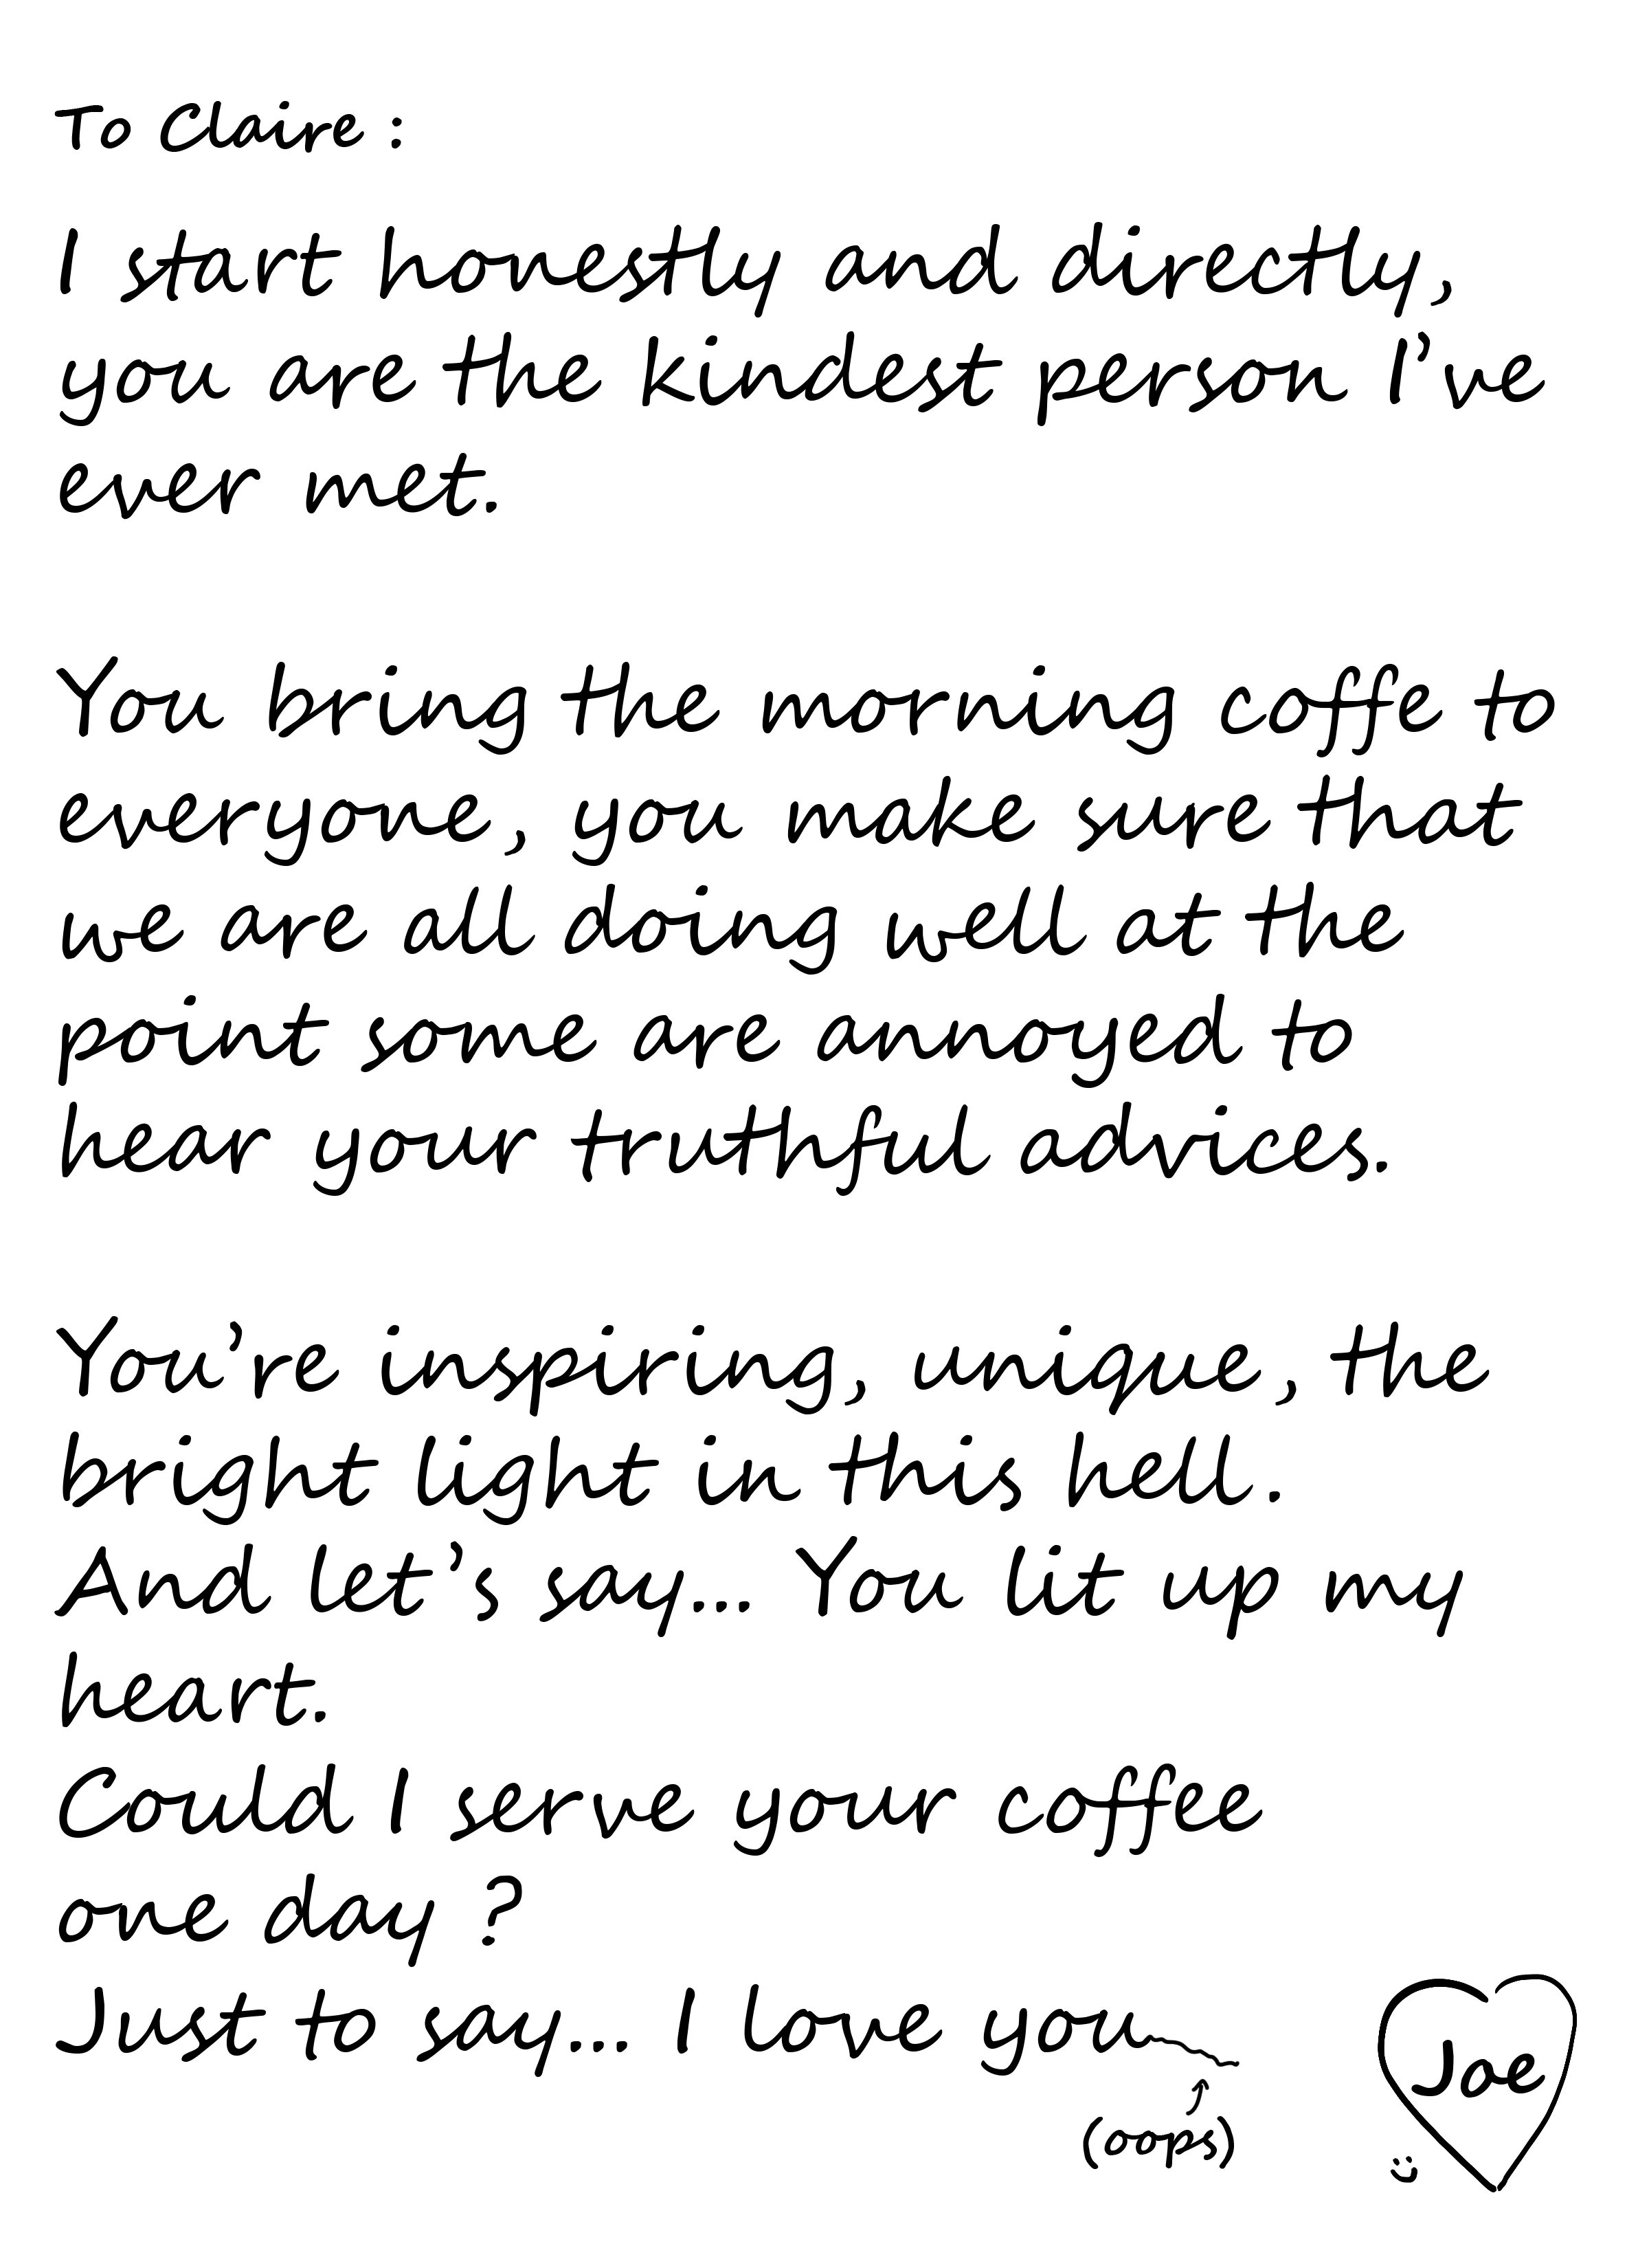 To Claire :
I start honestly and directly,
you are the kindest person I've
ever met.
You bring the morning coffe to
everyone, you make sure that
we are all doing well at the
point some are annoyed to
hear your truthful advices.
You're inspiring, unique, the
bright light in this hell.
And let's say... You lit up my
heart.
Could I serve your coffee
one day ?
Just to say... I love you
(oops)
Joe